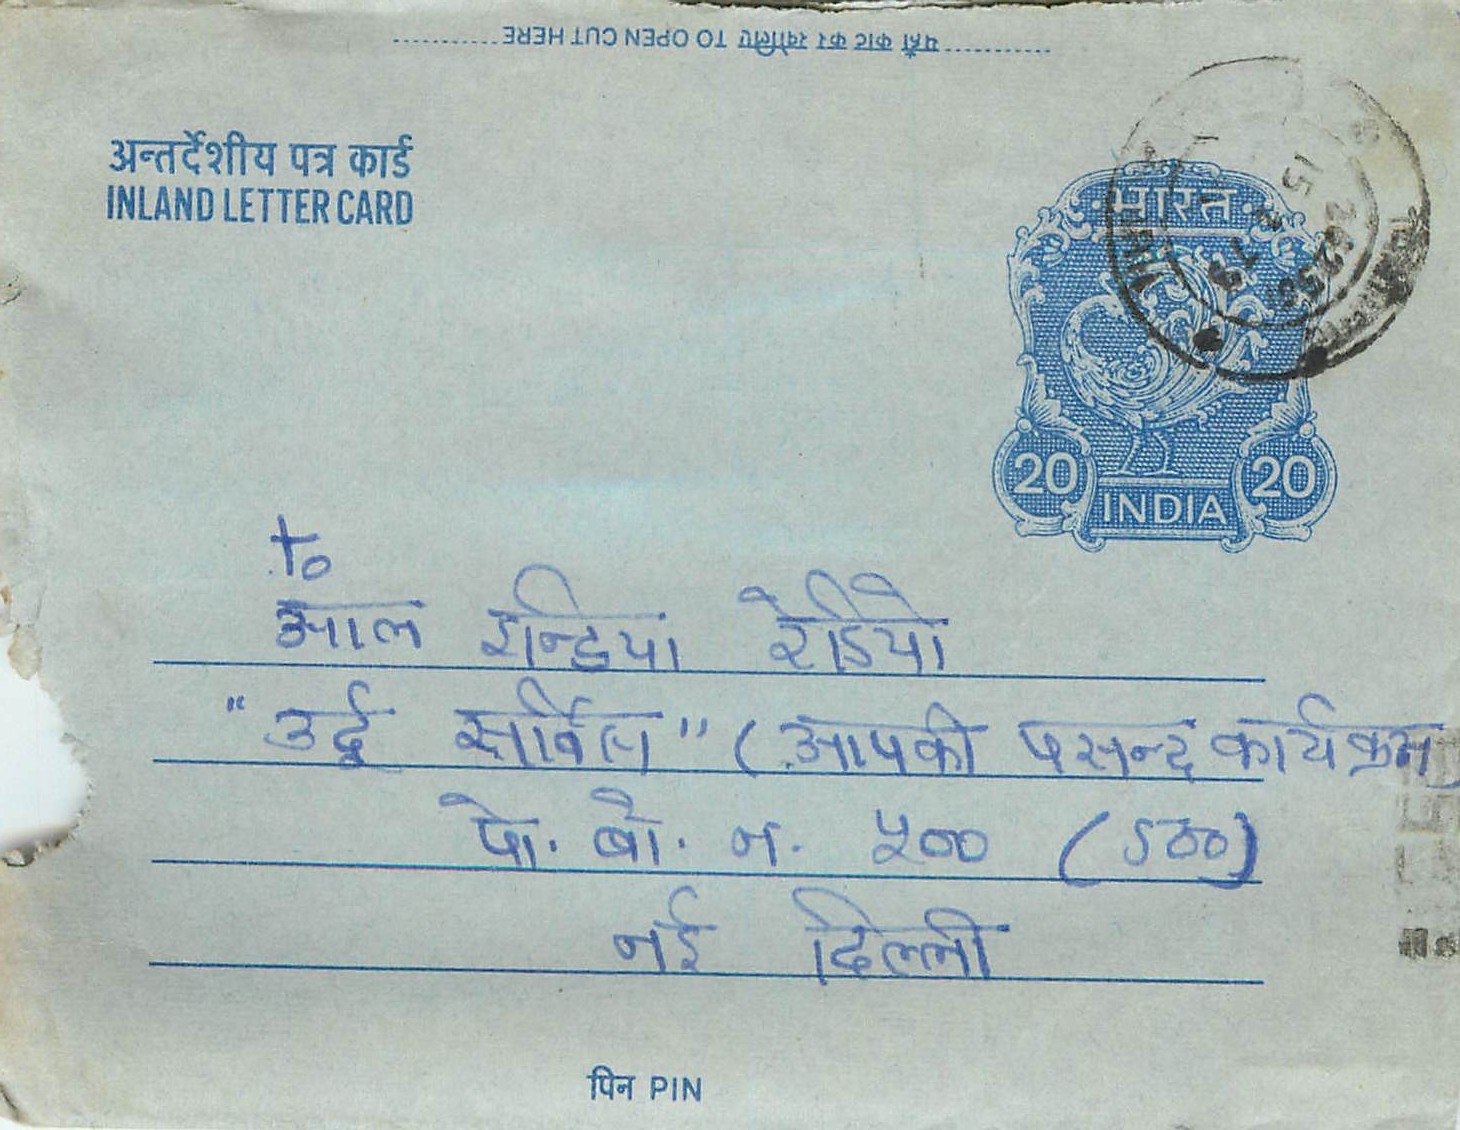 यहाँ काट कर खोलिए TO OPEN CUT HERE
अन्तर्देशीय पत्र कार्ड
INLAND LETTER CARD
भारत
20 20
INDIA
To
आल इन्डिया रेडियो
"उर्दू सर्विस" (आपकी पसन्द कार्यक्रम)
पो. बॉ. न. ५०० (500)
नई दिल्ली
पिन PIN